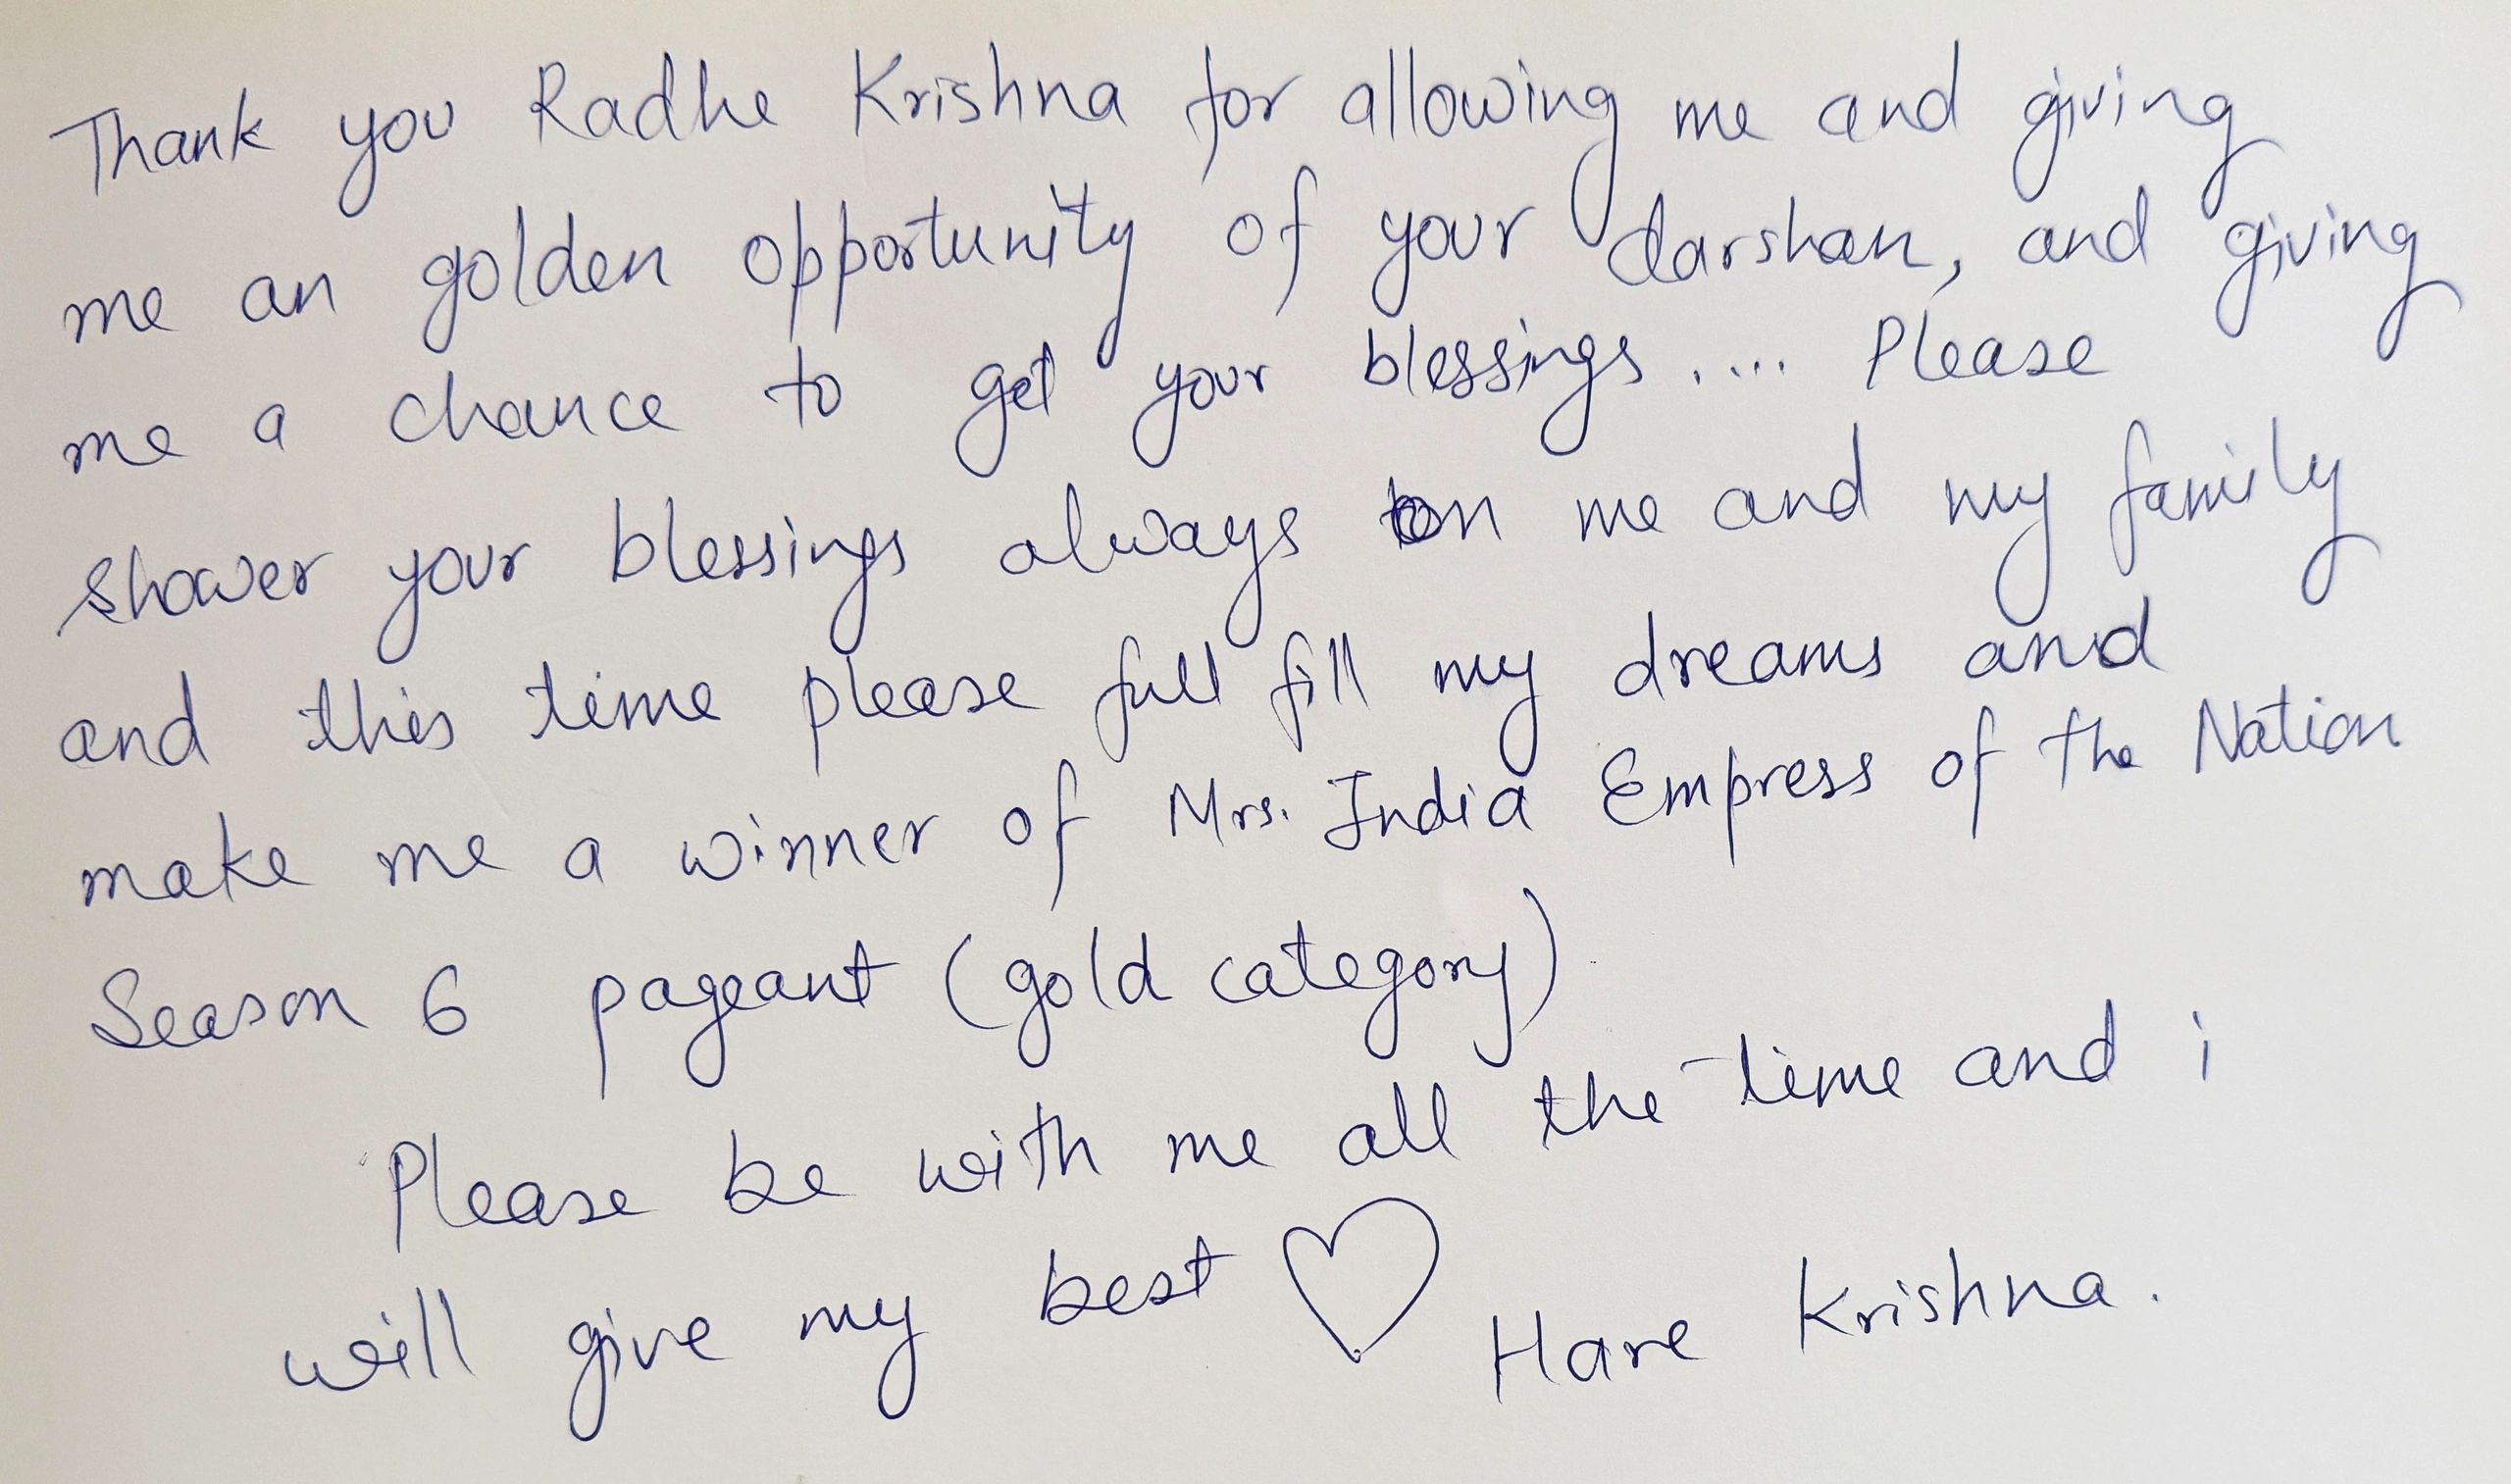 Thank you Radhe Krishna for allowing me and giving
me an golden opportunity of your darshan, and giving
me a chance to get your blessings.... Please
shower your blessings always on me and my family
and this time please full fill my dreams and
make me a winner of Mrs. India Empress of the Nation
Season 6 pageant (gold category).
Please be with me all the time and i
will give my best ♡ Hare Krishna.